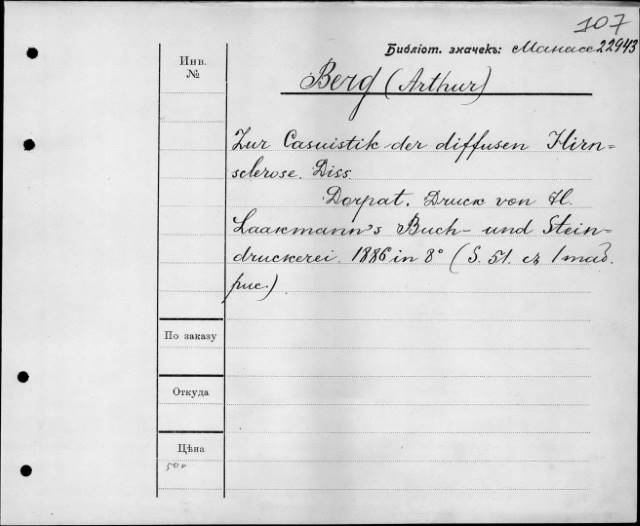 107
Библіот. значекъ: Манасе 22943
Инв.
№
Berg (Arthur)
Zur Casuistik der diffusen Hirn=
sclerose. Diss
Dorpat. Druck von H.
Laakmann's Buch- und Stein-
druckerei. 1886 in 8° (S. 51. съ 1 таб.
рис.)
По заказу
Откуда
Цѣна